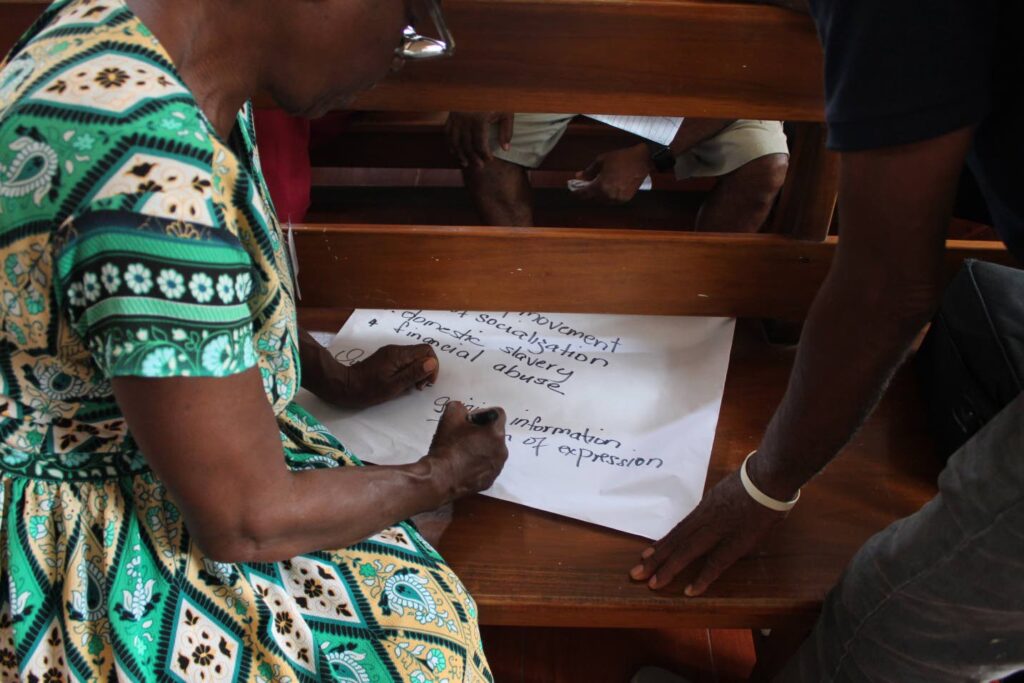 movement
socialization
domestic slavery
financial abuse
information
of expression